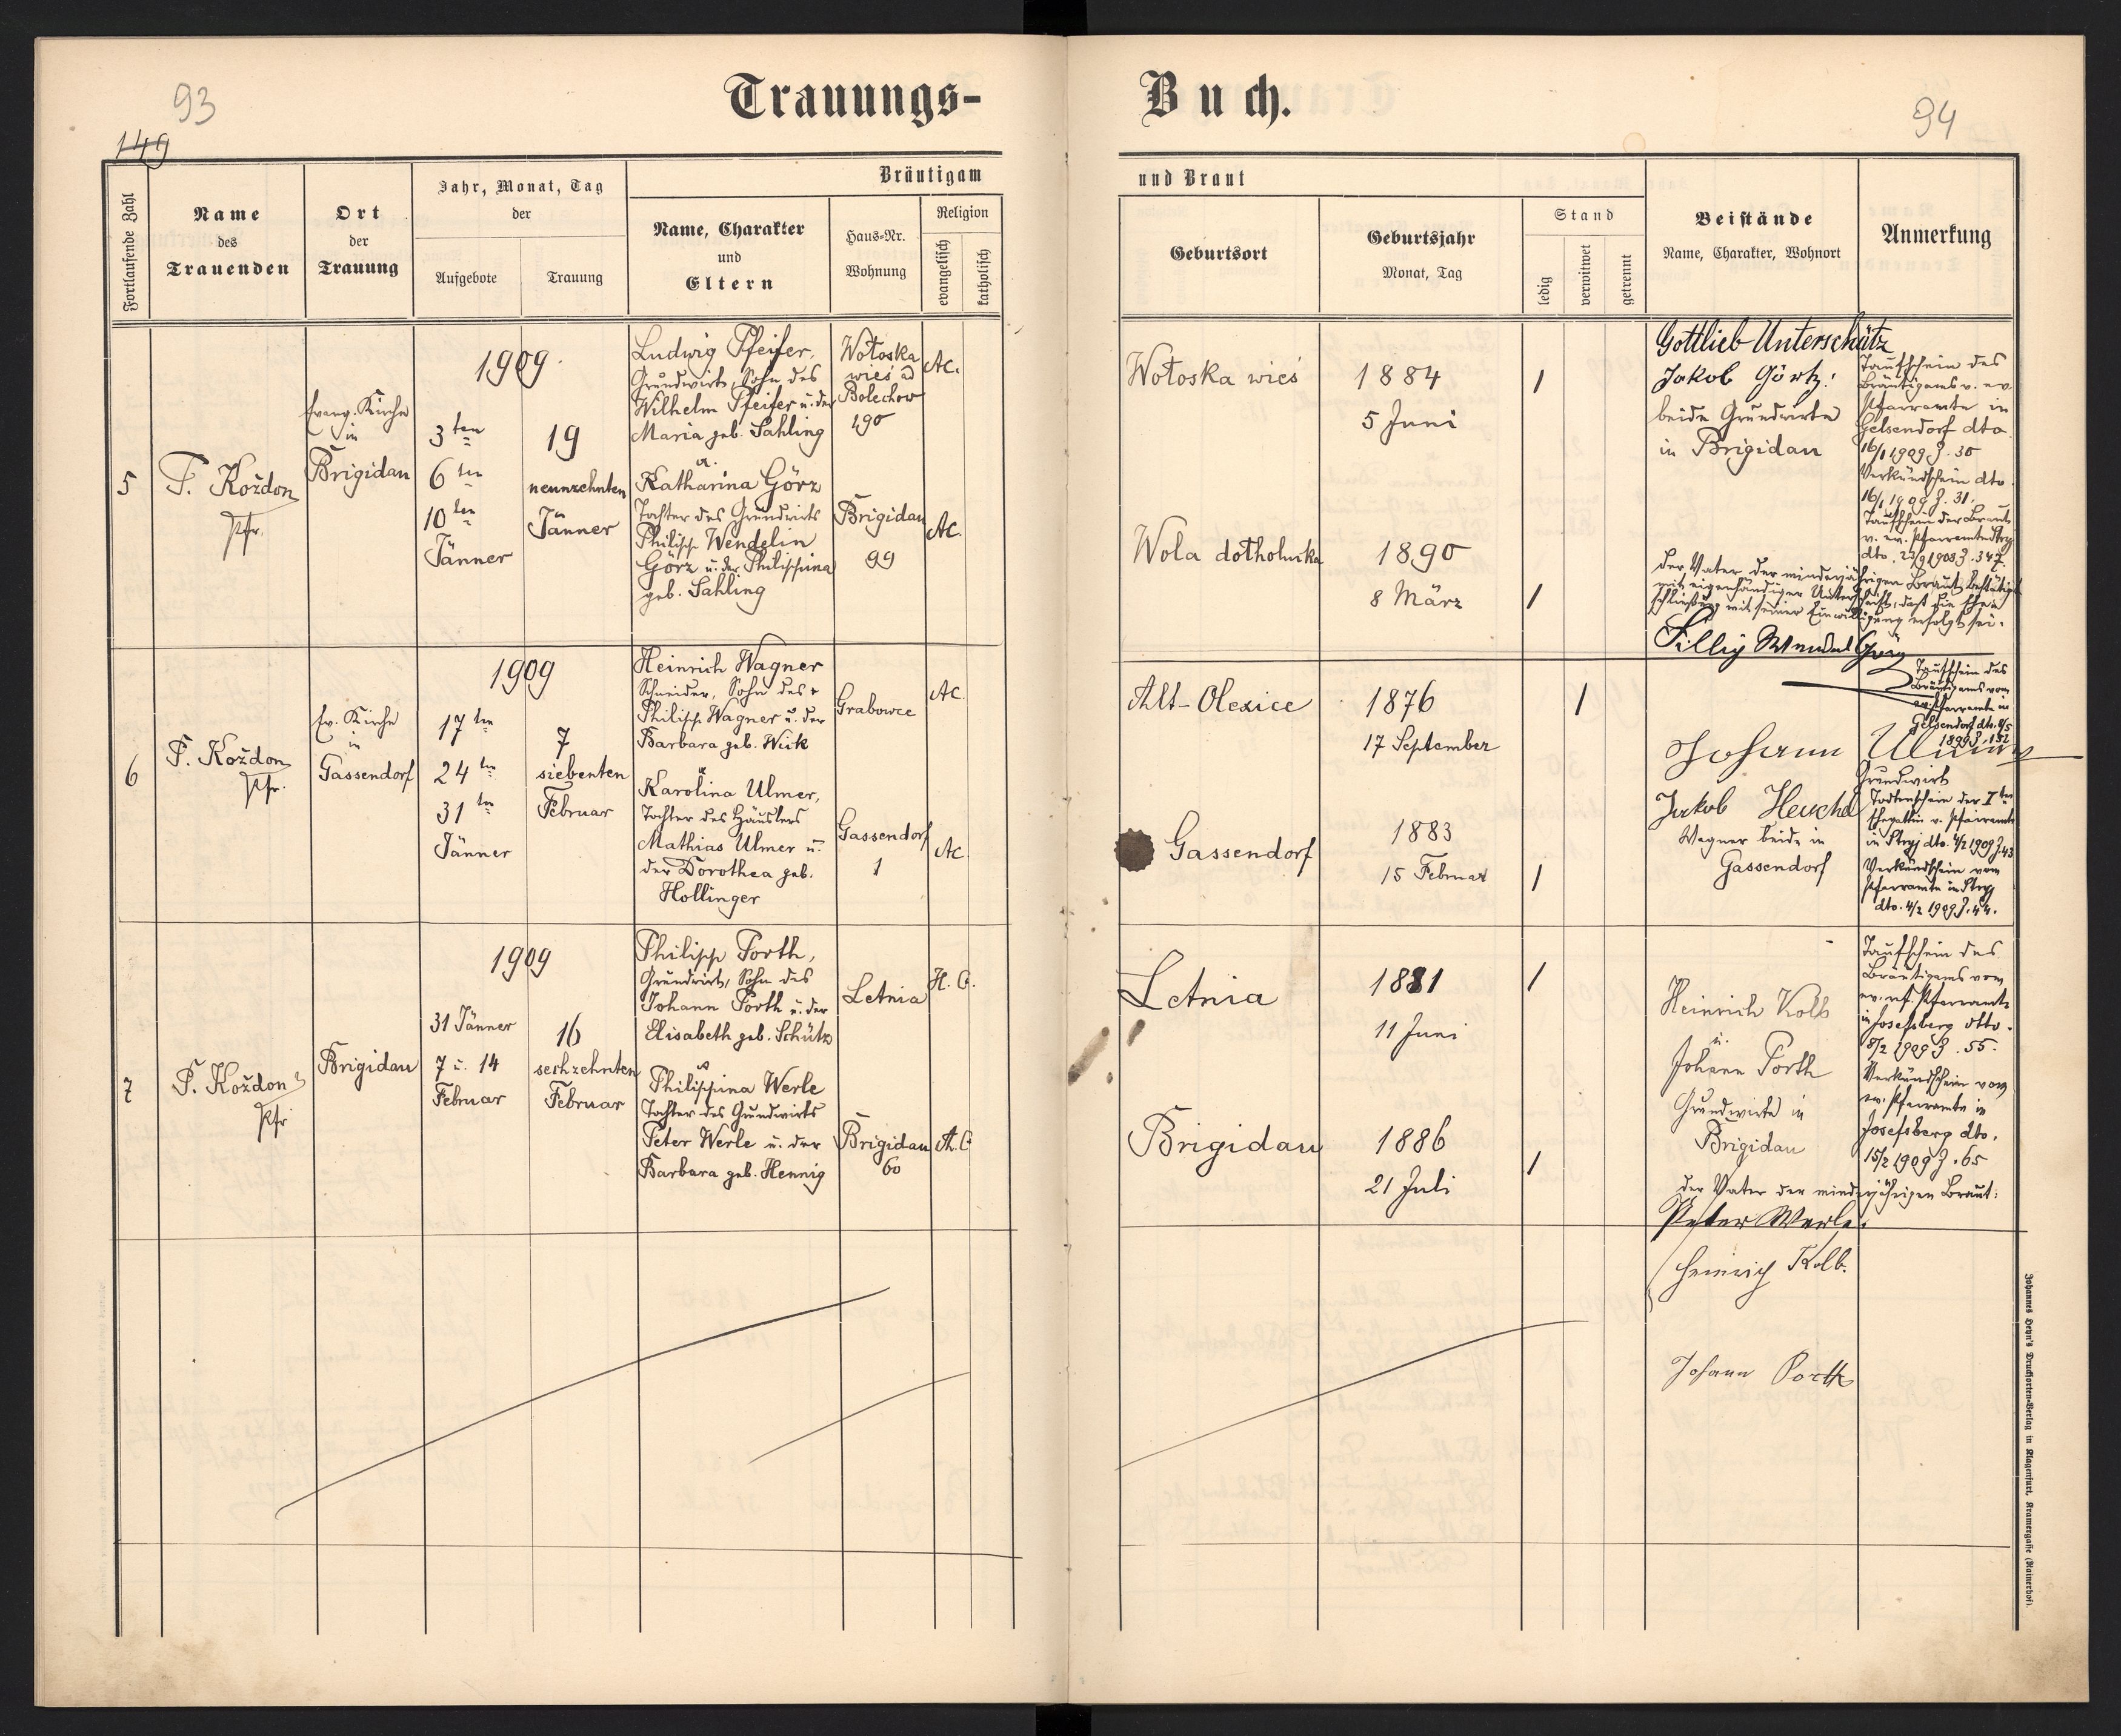 93
149
Trauungs-
Buch.
94
Fortlaufende Zahl
Name
des
Trauenden
Ort
der
Trauung
Jahr, Monat, Tag
der
Aufgebote
Trauung
Bräutigam
und Braut
Name, Charakter
und
Eltern
Haus-Nr.
Wohnung
Religion
evangelisch
katholisch
Geburtsort
Geburtsjahr
Monat, Tag
Stand
ledig
verwitwet
getrennt
Beistände
Name, Charakter, Wohnort
Anmerkung
5
F. Koždon
Pfr.
Evang. Kirche
in
Brigidau
1909.
3ten
6ten
10ten
Jänner
19
neunzehnten
Jänner
Ludwig Pfeifer,
Grundwirt, Sohn des
Wilhelm Pfeifer u. der
Maria geb. Sahling
u.
Katharina Görz
Tochter des Grundwirts
Philipp Wendelin
Görz u. der Philippina
geb. Sahling
Wołoska
wieś ad
Bolechow
190
Brigidau
99
AC.
AC.
Wołoska wieś
Wola dołholucka
1884
5 Juni
1890
8 März
1
1
Gottlieb Unterschütz
Jakob Görtz!
beide Grundwirte
in Brigidau
Taufschein des
Bräutigams v. ev.
Pfarramte in
Gelsendorf dto.
16/1 1909 Z. 30
Verkündschein dto.
16/1 1909 Z. 31.
Taufschein der Braut
v. ev. Pfarramte Stryj
dto. 23/9 1908 Z. 347.
Der Vater der minderjährigen Braut bestätigt
mit eigenhändiger Unterschrift, daß die Ehe-
schließung mit seiner Einwilligung erfolgt sei.
Fillip Wendel Görz
6
F. Koždon
Pfr.
Ev. Kirche
in
Gassendorf
1909
17ten
24ten
31ten
Jänner
7
siebenten
Februar
Heinrich Wagner
Schneider, Sohn des
Philipp Wagner u. der
Barbara geb. Wick
u
Karolina Ulmer,
Tochter des Häuslers
Mathias Ulmer u.
der Dorothea geb.
Hollinger
Grabowce
Gassendorf
1
AC.
AC
Alt-Olexice
Gassendorf
1876
17 September
1883
15 Februar
1
1
Johann Ulmer
Grundwirt
Jakob Heuchel
Wagner beide in
Gassendorf
Taufschein des
Bräutigams vom
ev. Pfarramte in
Gelsendorf dto.
1899 Z. 132
Todtenschein der Iten
Ehegattin v. Pfarramte
in Stryj dto. 4/2 1909 Z. 43
Verkündschein vom
Pfarramte in Stryj
dto. 4/2 1909 Z. 44.
7
F. Koždon
Pfr
Brigidau
1909
31 Jänner
7 u. 14
Februar
16
sechzehnten
Februar
Philipp Porth,
Grundwirt, Sohn des
Johann Porth u. der
Elisabeth geb. Schütz
u
Philippina Werle
Tochter des Grundwirts
Peter Werle u. der
Barbara geb. Hennig
Letnia
Brigidau
60
H. C.
A. C
Letnia
Brigidau
1881
11 Juni
1886
21 Juli
1
1
Heinrich Kolb
u.
Johann Porth
Grundwirte in
Brigidau
Taufschein des
Bräutigams vom
ev. ref. Pfarramte
in Josefsberg dtto.
8/2 1909 Z. 55.
Verkündschein vom
ev. Pfarramte in
Josefsberg dto.
15/2 1909 Z. 65
Der Vater der minderjährigen Braut:
Peter Werle.
Heinrich Kolb.
Johann Porth
Johannes Heyn's Drucksorten-Verlag in Klagenfurt, Kramergasse (Rainerhof).